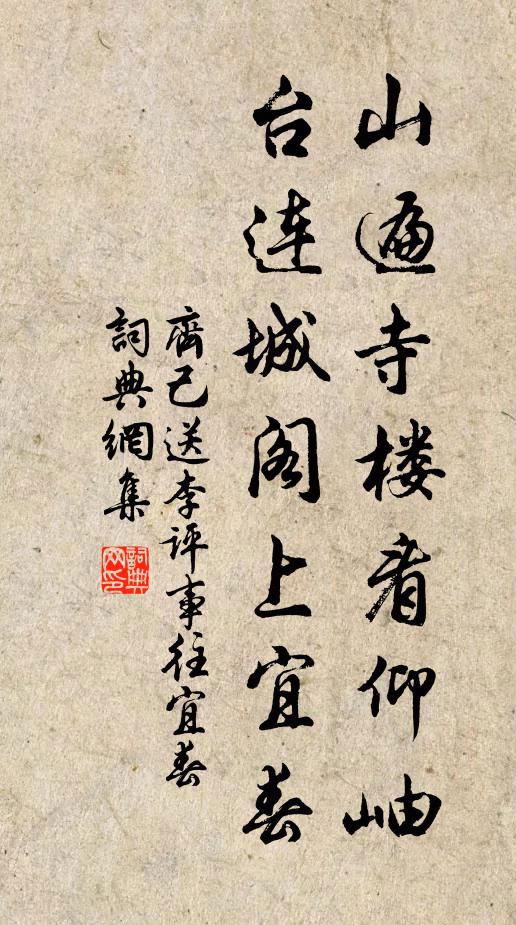 山遍寺楼看仰岫
台连城阁上宜春
齊己送李评事往宜春
詞典網集
詞典网印